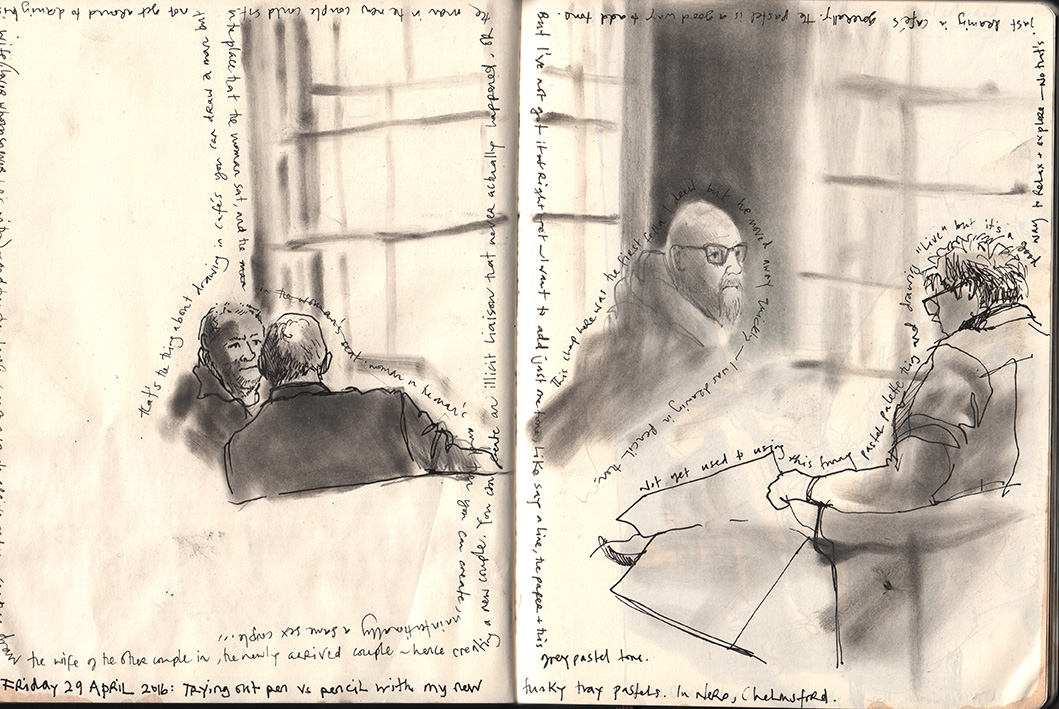 Friday 29 April 2016: Trying out pen vs pencil with my new funky tray pastels. In Nero, Chelmsford.
that's the thing about drawing in café's you can draw a man but
not get around to drawing his
wife/lover whomsoever
the wife of the other couple in, the newly arrived couple – hence creating
a new couple. You could create an illicit liaison that never actually happened. Or
the man in the new couple could sit
in the place that the woman sat, and the
in the woman's seat. woman in the man's
you can create,
unintentionally a same sex couple...
This chap here was the first fella I drew but he moved away quickly – I was drawing in pencil then
Not yet used to using this funky pastel palette thing and drawing "live" but it's a good
way to Relax + explore – No that's
just drawing in café's generally. The pastel is a good way to add tone.
But I've not got it right yet – I want to add just one tone, like say a line, the paper + this
grey pastel tone.